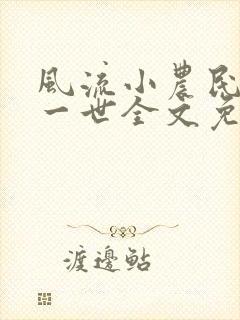 風流小農民
一世全文免
渡邊鲇